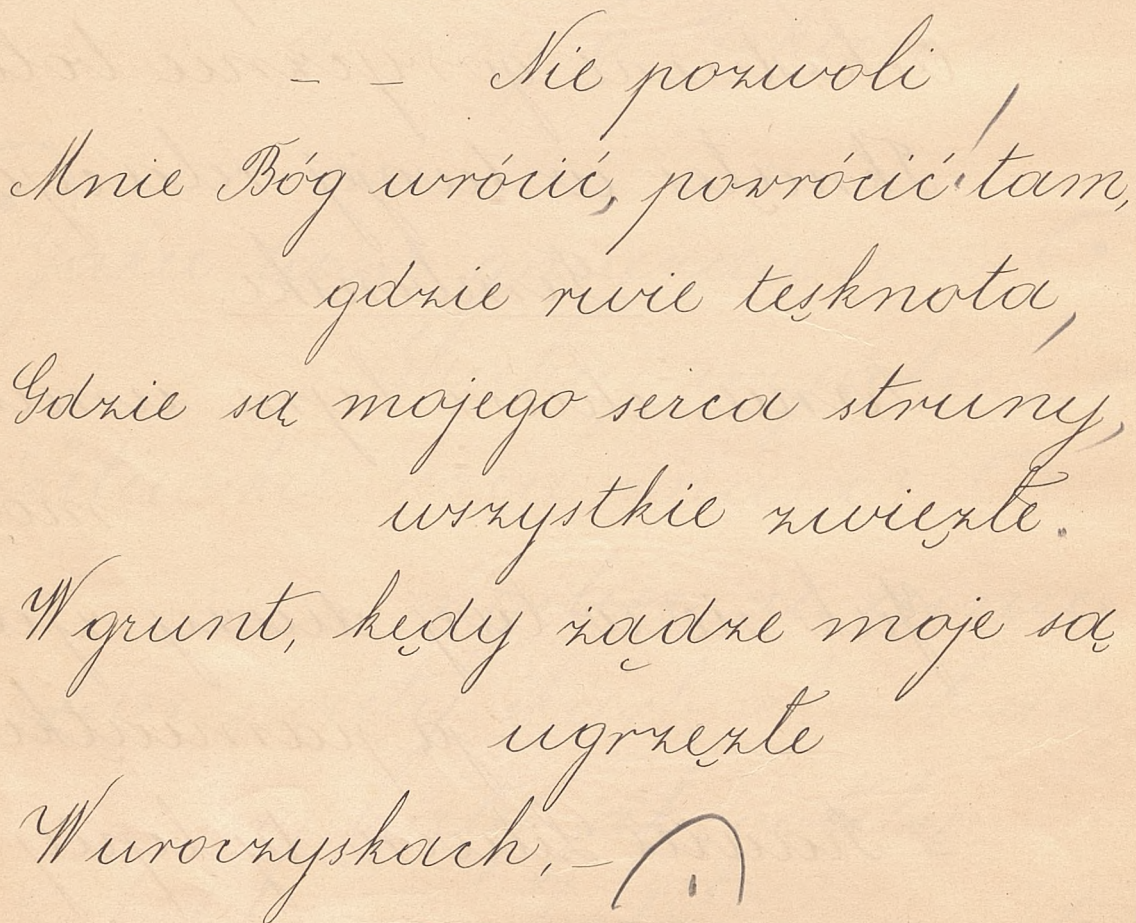 – – Nie pozwoli
Mnie Bóg wrócić, powrócić tam,
gdzie rwie tęsknota,
Gdzie są mojego serca struny,
wszystkie zwięzłe.
W grunt, kędy żądze moje są
ugrzęzłe
W uroczyskach, –